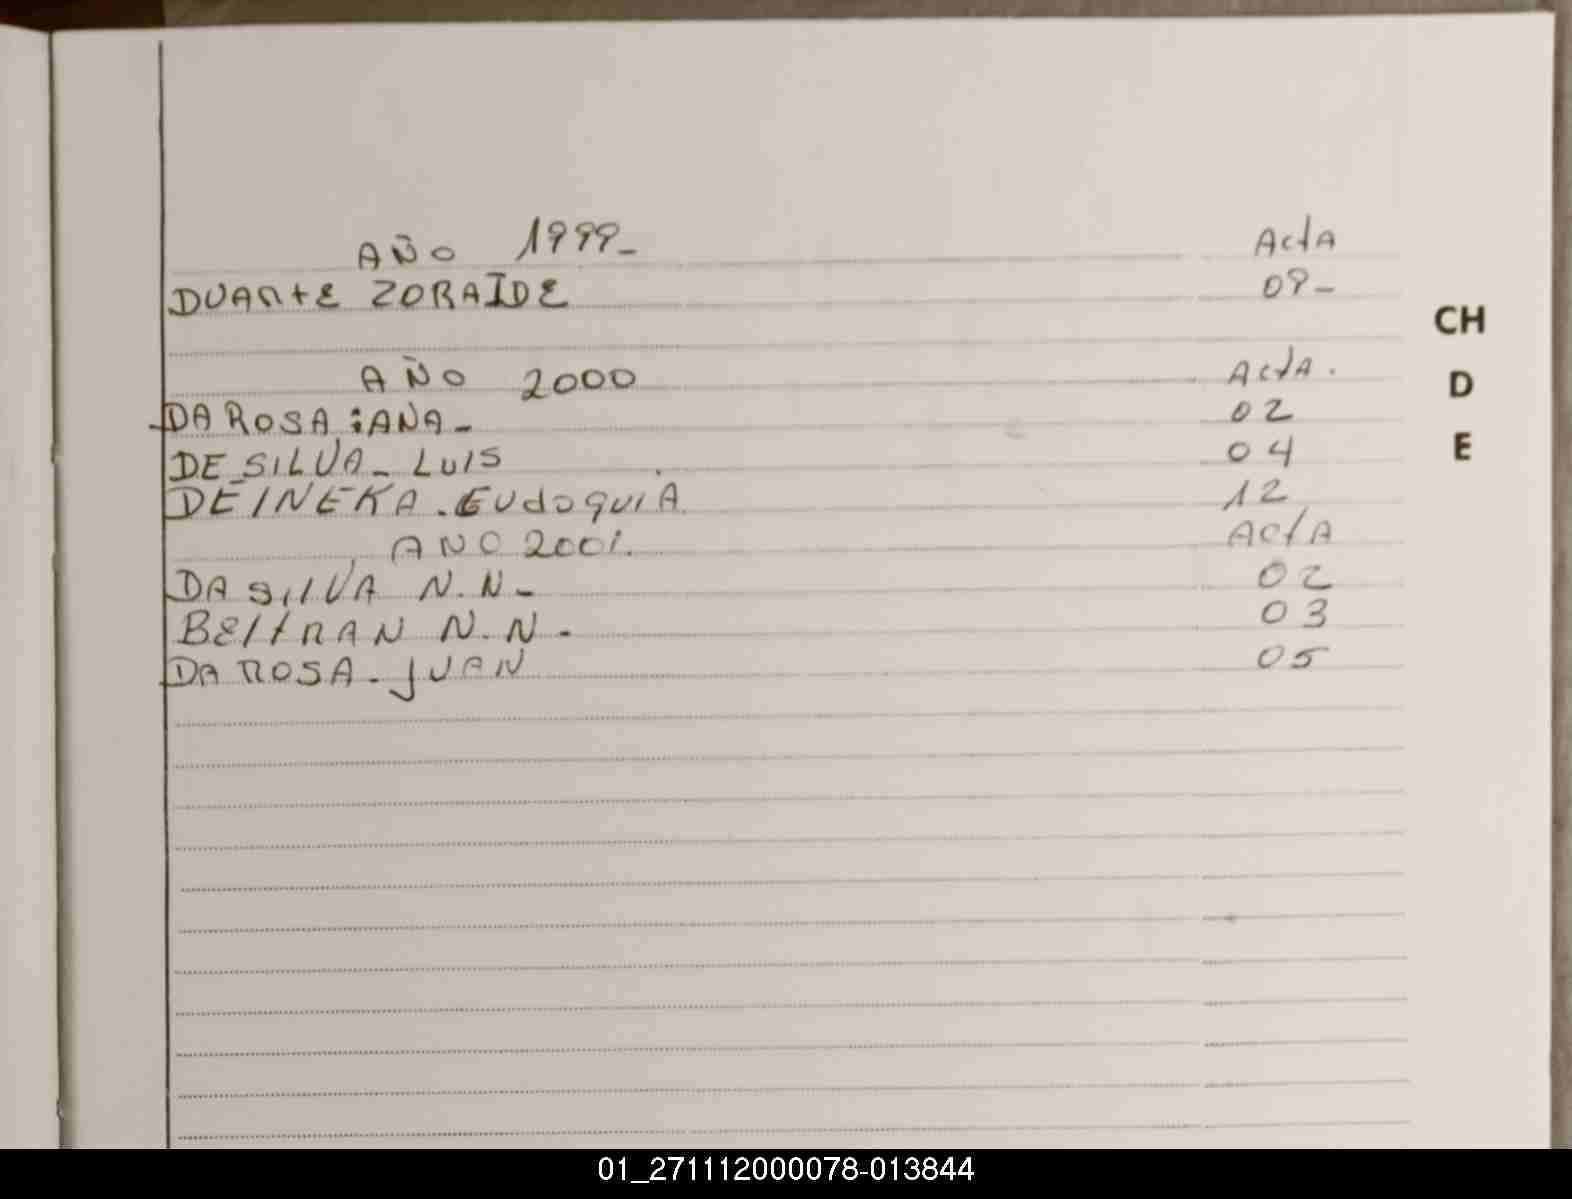 AÑO 1999- Acta
DUARTE ZORAIDE 09-
CH
AÑO 2000 Acta.
D
DA ROSA: ANA- 02
DE SILVA- LUIS 04
E
DEINEKA. EUdoquiA. 12
ANO 2001. ActA
DA SILVA N.N- 02
BELTRAN N.N- 03
DA ROSA- JUAN 05
01_271112000078-013844